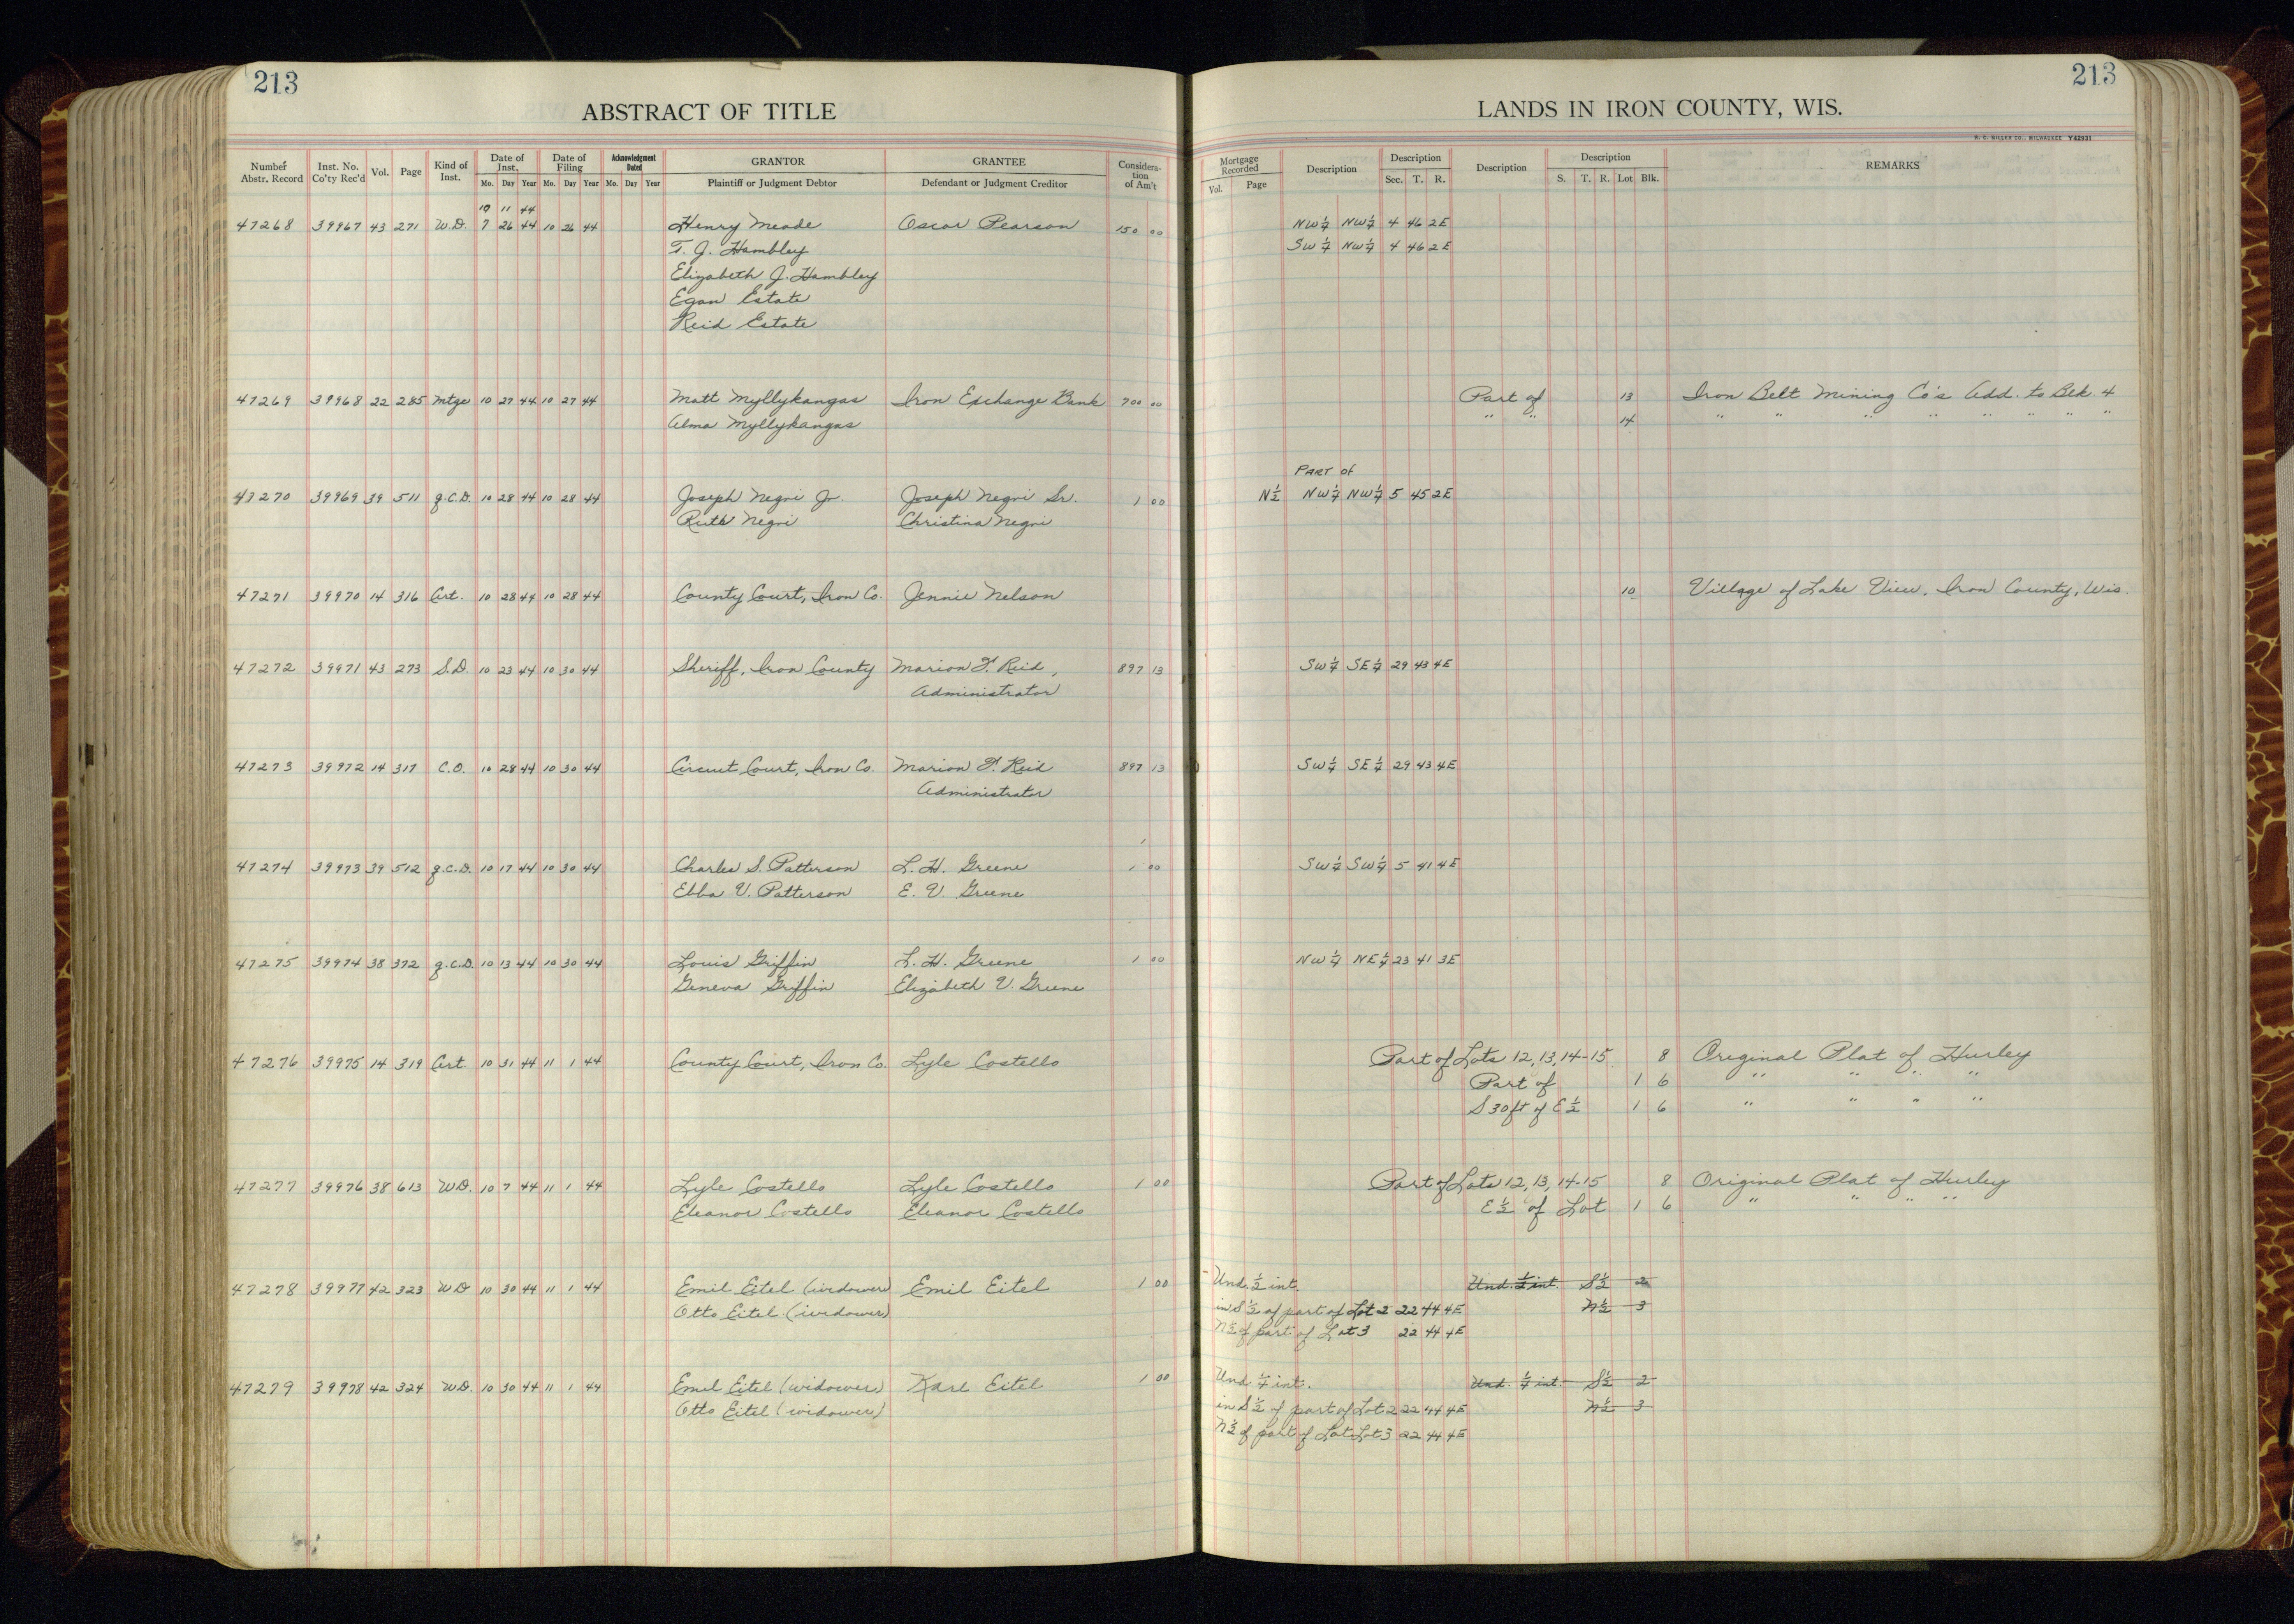 213
213
ABSTRACT OF TITLE
LANDS IN IRON COUNTY, WIS.
H. C. MILLER CO., MILWAUKEE Y42931
Number Abstr. Record Inst. No. Co'ty Rec'd Vol. Page Kind of Inst. Date of Inst. Mo. Day Year Date of Filing Mo. Day Year Acknowledgment Dated Mo. Day Year GRANTOR Plaintiff or Judgment Debtor GRANTEE Defendant or Judgment Creditor Considera-tion of Am't Mortgage Recorded Vol. Page Description Description Sec. T. R. Description Description S. T. R. Lot Blk. REMARKS
10 11 44
47268 39967 43 271 W.D. 7 26 44 10 26 44 Henry Meade Oscar Pearson 150 00 NW¼ NW¼ 4 46 2E
T. J. Hambley SW¼ NW¼ 4 46 2E
Elizabeth J. Hambley
Egan Estate
Reid Estate
47269 39968 22 285 Mtge 10 27 44 10 27 44 Matt Myllykangas Iron Exchange Bank 700 00 Part of 13 Iron Belt Mining Co's Add. to Blk. 4
Alma Myllykangas " " 14 " " " " " " "
PART of
47270 39969 39 511 q.C.D. 10 28 44 10 28 44 Joseph Negri Jr. Joseph Negri Sr. 1 00 N½ NW¼ NW¼ 5 45 2E
Ruth Negri Christina Negri
47271 39970 14 316 Crt. 10 28 44 10 28 44 County Court, Iron Co. Jennie Nelson 10 Village of Lake View, Iron County, Wis.
47272 39971 43 273 S.D. 10 23 44 10 30 44 Sheriff, Iron County Marion F. Reid, 897 13 SW¼ SE¼ 29 43 4E
Administrator
47273 39972 14 317 C.O. 10 28 44 10 30 44 Circuit Court, Iron Co. Marion F. Reid 897 13 SW¼ SE¼ 29 43 4E
Administrator
47274 39973 39 512 q.C.D. 10 17 44 10 30 44 Charles S. Patterson L. H. Greene 1 00 SW¼ SW¼ 5 41 4E
Ebba V. Patterson E. V. Greene
47275 39974 38 372 q.C.D. 10 13 44 10 30 44 Louis Griffin L. H. Greene 1 00 NW¼ NE¼ 23 41 3E
Geneva Griffin Elizabeth V. Greene
47276 39975 14 319 Crt. 10 31 44 11 1 44 County Court, Iron Co. Lyle Costello Part of Lots 12, 13, 14-15 8 Original Plat of Hurley
Part of 1 6 " " " "
S 30 ft of E½ 1 6 " " " "
47277 39976 38 613 W.D. 10 7 44 11 1 44 Lyle Costello Lyle Costello 1 00 Part of Lots 12, 13, 14-15 8 Original Plat of Hurley
Eleanor Costello Eleanor Costello E½ of Lot 1 6 " " " "
47278 39977 42 323 W.D 10 30 44 11 1 44 Emil Eitel (widower) Emil Eitel 1 00 Und. ½ int. Und. ½ int. S½ 2
Otto Eitel (widower) in S½ of part of Lot 2 22 44 4E N½ 3
N½ of part of Lot 3 22 44 4E
47279 39978 42 324 W.D. 10 30 44 11 1 44 Emil Eitel (widower) Karl Eitel 1 00 Und. ¼ int. Und. ¼ int. S½ 2
Otto Eitel (widower) in S½ of part of Lot 2 22 44 4E N½ 3
N½ of part of Lot Lot 3 22 44 4E